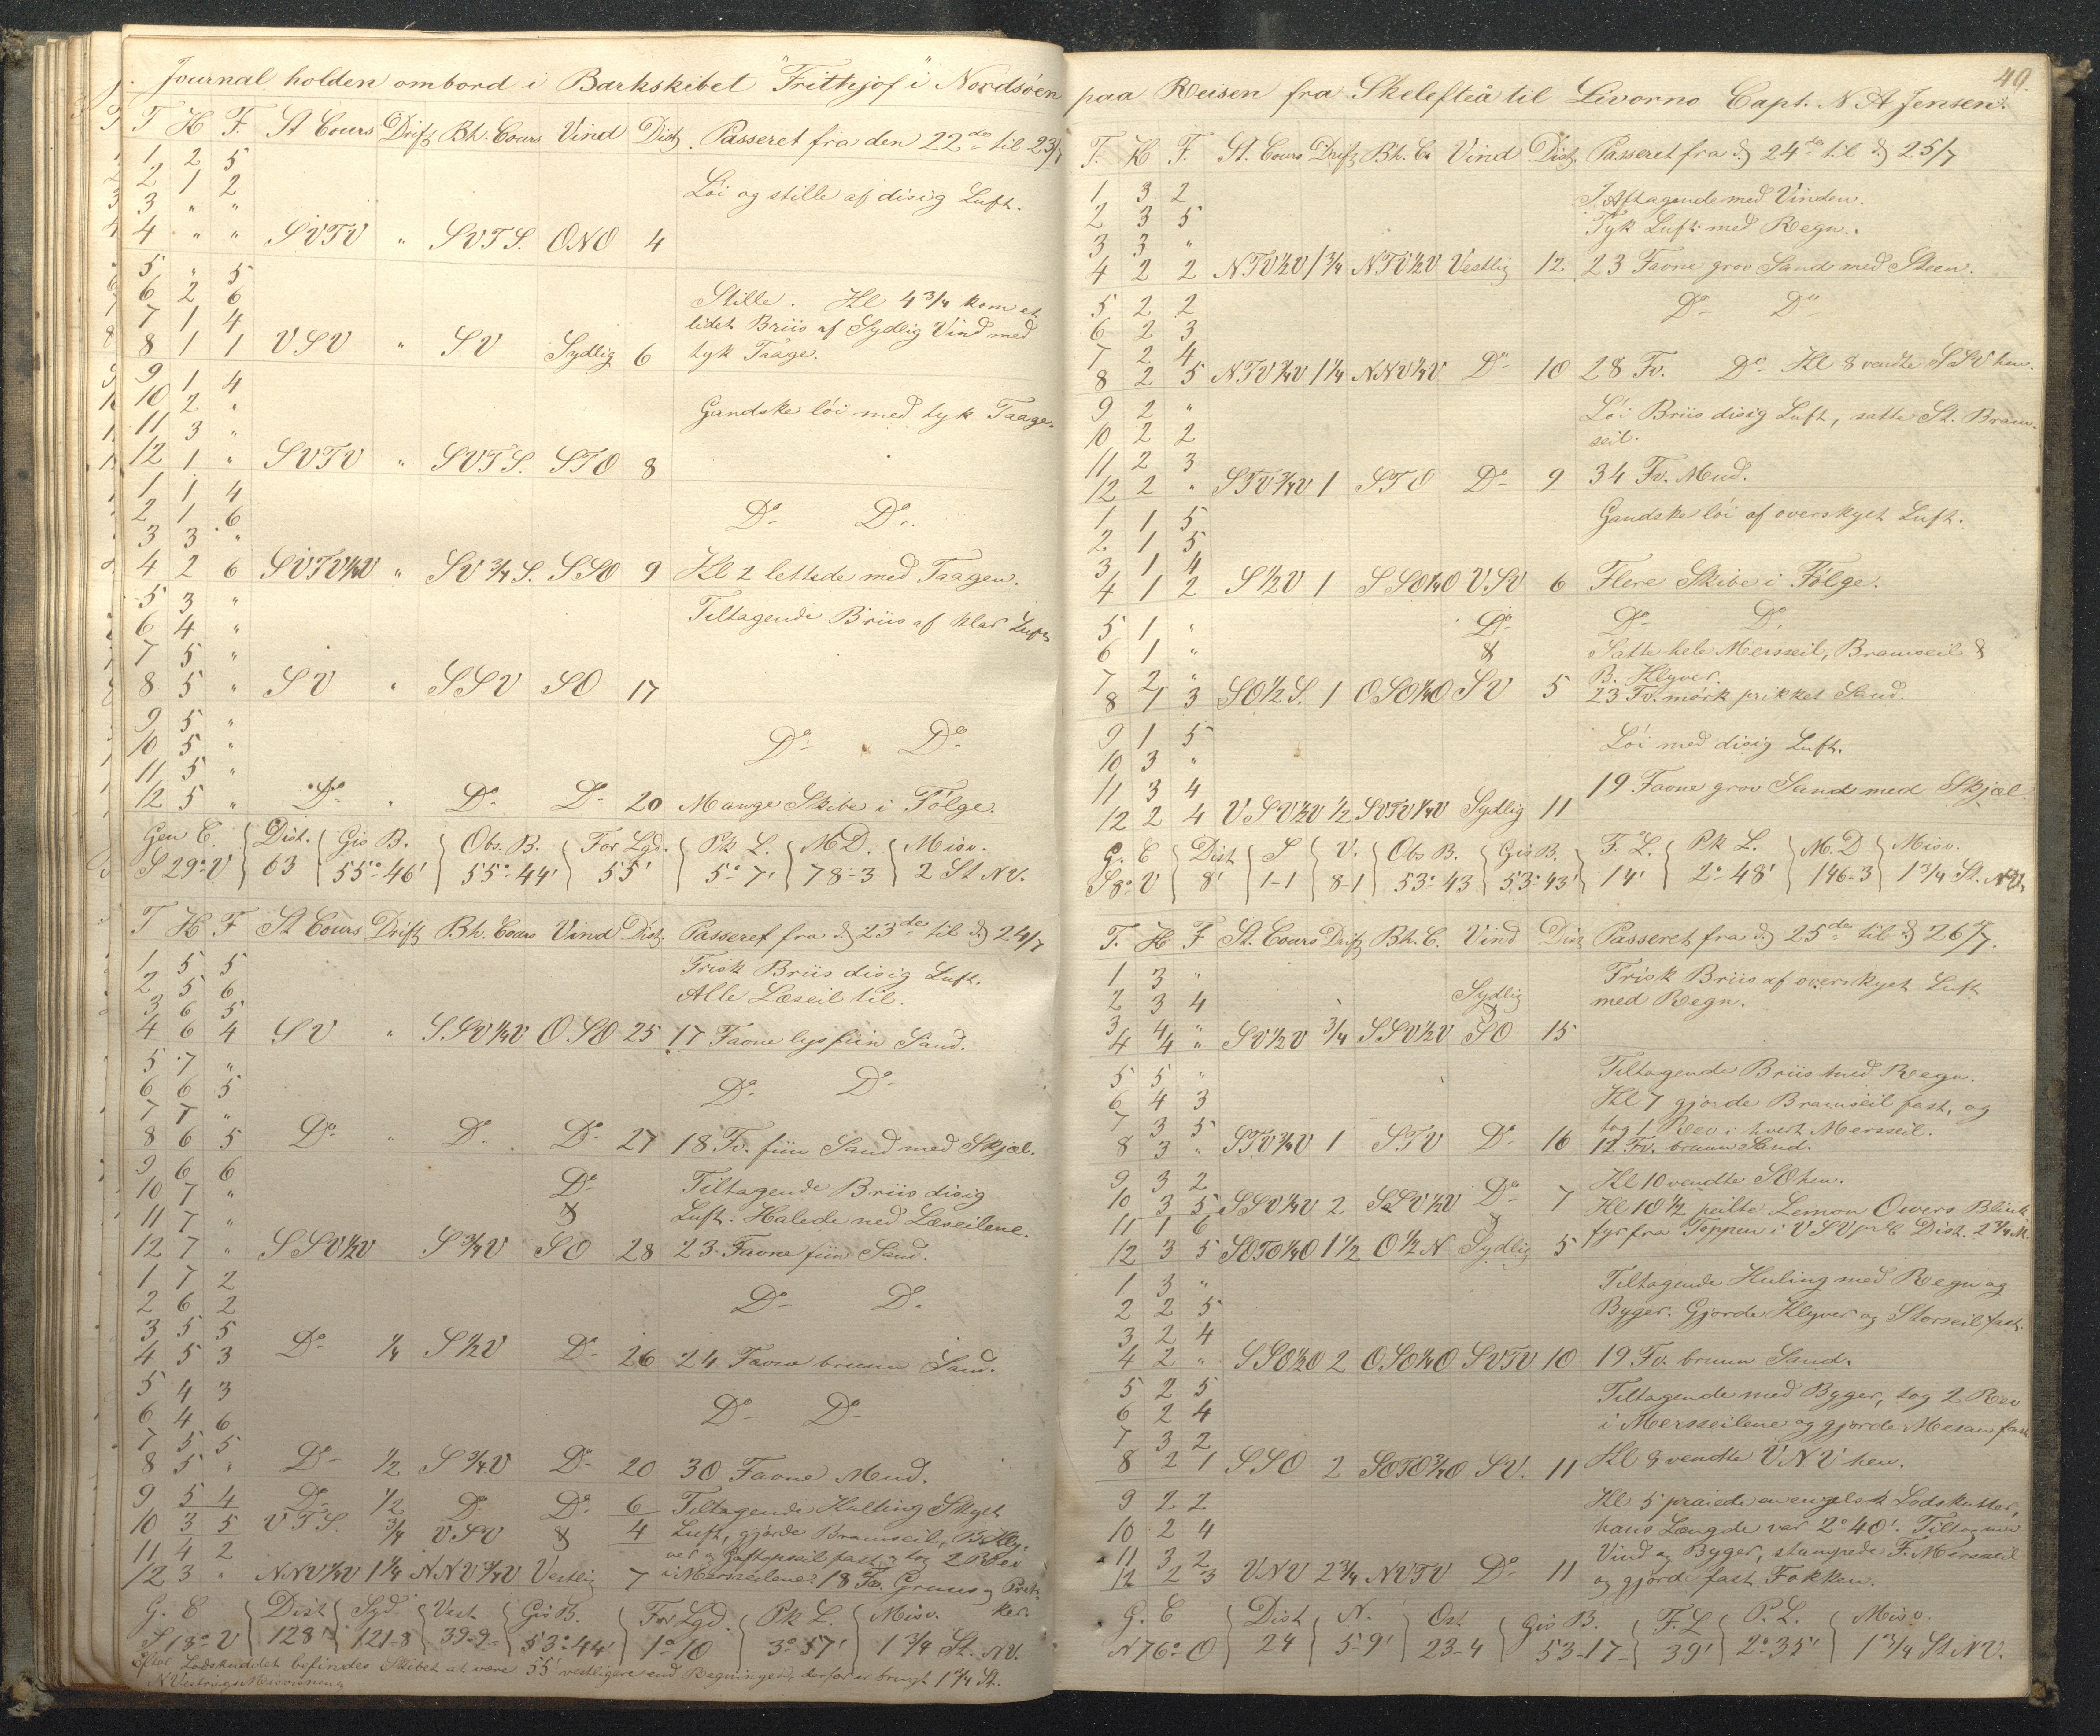 Journal holden ombord i Barkskibet "Frithjof" i Nordsöen
T H F. St Cours Drift Bh. Cours Vind Dist. Passeret fra den 22de til 23/7
1 2 5
2 1 2 Löi og stille af disig Luft.
3 " "
4 " " SVTV " SVTS. ONO 4
5 " 5
6 2 6 Stille. Kl 4 3/4 kom et
7 1 4 lidet Briis af Sydlig Vind med
8 1 1 VSV " SV Sydlig 6 tyk Taage.
9 1 4
10 2 " Gandske löi med tyk Taage.
11 3 "
12 1 " SVTV " SVTS. STO 8
1 1 4
2 1 6 Do Do.
3 3 "
4 2 6 SVTV1/2V " SV 3/4 S. SSO 9 Kl 2 lettede med Taagen.
5 3 " Tiltagende Briis af klar Luft
6 4 "
7 5 "
8 5 " SV " SSV SO 17
9 5 "
10 5 " Do Do
11 5 "
12 5 " Do " Do Do 20 Mange Skibe i Fölge.
Gen C. Dist. Gis B. Obs. B. For Lgd. Pk L. M.D. Misv.
S 29° V 63 55° 46' 55° 44' 55' 5° 7' 78-3 2 St NV.
T H F St Cours Drift Bh. Cours Vind Dist. Passeret fra d 23de til d 24/7
1 5 5 Frisk Briis disig Luft.
2 5 6 Alle Læseil til.
3 6 5
4 6 4 SV " SSV1/4V OSO 25 17 Favne lys fiin Sand.
5 7 "
6 6 5 Do Do
7 7 "
8 6 5 Do " Do. Do 27 18 Fv. fiin Sand med Skjæl.
9 6 6 Do Tiltagende Briis disig
10 7 " & Luft. Halede ned Læseilene.
11 7 "
12 7 " SSV1/2V S3/4V SO 28 23 Favne fiin Sand.
1 7 2
2 6 2 Do Do.
3 5 5
4 5 3 Do 1/4 S1/2V Do 26 24 Favne bruun Sand.
5 4 3
6 4 6 Do Do
7 5 5
8 5 " Do 1/2 S3/4V Do 20 30 Favne Mud.
9 5 4 Do 1/2 Do Do. 6 Tiltagende Kulling Skyet
10 3 5 VTS. 3/4 VSV & 4 Luft, gjörde Bramseil, B. Kly-
11 4 2 ver og Gaftopseil fast og tog 2 Rev
12 3 " NNV1/4V 1 1/4 NNV3/4V Vestlig 7 i Mersseilene. 18 Fv. Gruus og Prik-
ker.
G. C Dist Syd Vest Gis B. For Lgd. Pk L. Misv.
S. 18° V 128' 121-8 39-9 53° 44' 1° 10 3° 57' 1 3/4 St. NV.
Efter Lodskuddet befindes Skibet at være 55' vestligere end Regningen, derfor er brugt 1 3/4 St.
NVestrings Misviisning
49.
paa Reisen fra Skelefteå til Livorno Capt. N A Jensen.
T. H F. St. Cours Drift Bh. C. Vind Dist. Passeret fra d 24de til d 25/7
1 3 2 Aftagende med Vinden.
2 3 5 Tyk Luft med Regn.
3 3 "
4 2 2 NTV1/2V 1 3/4 NTV1/2V Vestlig 12 23 Favne grov Sand med Steen.
5 2 2 Do Do
6 2 3
7 2 4
8 2 5 NTV3/4V 1 1/4 NNV1/4V Do 10 28 Fv. Do Kl 8 vendte SSV hen.
9 2 " Löi Briis disig Luft, satte St. Bram-
10 2 2 seil.
11 2 3
12 2 " STV3/4V 1 STO Do 9 34 Fv. Mud.
1 1 5 Gandske löi af overskyet Luft.
2 1 5
3 1 4
4 1 2 S1/2V 1 SSO1/4O VSV 6 Flere Skibe i Fölge.
5 1 " Do Do Do.
6 1 " & Satte hele Mersseil, Bramseil &
7 2 " B. Klyver.
8 1 3 SO1/2S. 1 OSO1/4O SV 5 23 Fv. mörk prikket Sand.
9 1 5 Löi med disig Luft.
10 3 "
11 3 4 19 Favne grov Sand med Skjæl.
12 2 4 VSV1/2V 1/2 SVTV1/4V Sydlig 11
G. C Dist S V. Obs B. Gis B. F. L. Pk L. M.D Misv.
S 8° V 8' 1-1 8-1 53° 43 53° 43' 14' 2° 48' 146-3 1 3/4 St. NV.
T. H F St. Cours Drift Bh. C. Vind Dist Passeret fra d 25de til d 26/7.
1 3 " Frisk Briis af overskyet Luft
2 3 4 Sydlig med Regn.
3 4 " &
4 4 " SV1/2V 3/4 SSV1/2V SO 15
5 5 " Tiltagende Briis med Regn.
6 4 3 Kl 7 gjorde Bramseil fast, og
7 3 5 tog 1 Rev i hvert Mersseil.
8 3 " STV3/4V 1 STV Do 16 12 Fv. bruun Sand.
9 3 2 Kl 10 vendte SO hen.
10 3 5 SSV1/4V 2 SSV1/2V Do 7 Kl 10 1/2 peilte Lemon Owers Blink
11 1 6 & fyr fra Toppen i VSV pr C Dist. 2 3/4 M.
12 3 5 SOTO1/4O 1 1/2 O1/2N Sydlig 5
1 3 " Tiltagende Kuling med Regn og
2 2 5 Byger. Gjorde Klyver og Storseil fast.
3 2 4
4 2 " SSO1/2O 2 OSO1/4O SVTV 10 19 Fv. bruun Sand.
5 2 5 Tiltagende med Byger, tog 2 Rev
6 2 4 i Mersseilene og gjorde Mesan fast
7 3 2
8 2 1 SSO 2 SOTO3/4O SV. 11 Kl 8 vendte VNV hen.
9 2 2 Kl 5 praiede en engelsk Lodskutter,
10 2 4 hans Længde var 2° 40'. Tiltagende
11 3 2 Vind og Byger, stumpede F. Mersseil
12 2 3 VNV 2 3/4 NVTV Do 11 og gjorde fast Fokken.
G. C Dist N. Ost Gis B. F. L P. L. Misv.
N 76° O 24 5-9' 23-4 53-17- 39' 2° 35' 1 3/4 St NV.